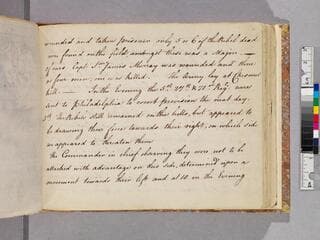 wounded and taken prisoner only 5 or 6 of the Rebel dead
were found on the field amongst them was a Major —
of ours Capt. Sr. James Murray was wounded and three
or four men, one was killed. The Army lay at Chesnut
hill — In the Evening the 5th. 27th. & Regt. were
sent to Philadelphia to escort provisions the next day.
5th. The Rebels still remained on their hills, but appeared to
be drawing their force towards their right, on which side
appeared to threaten them
The Commander in chief observing they were not to be
attacked with advantage on this side, determined upon a
movement towards their left and at 10. in the Evening